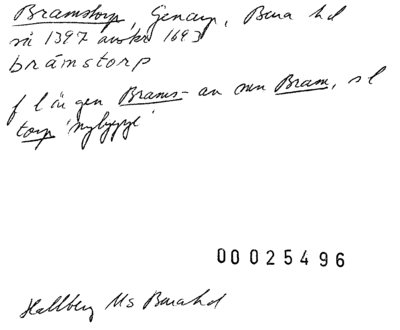 Bramstorp, Genarp, Bara hd
så 1397 avskr 1693
brámstorp
f l är gen Brams- av mn Bram, s l
torp 'nybygge'
00025496
Hallberg Ms Bara hd